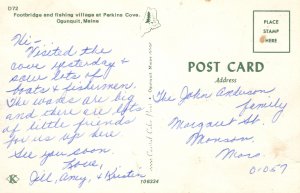 D72
Footbridge and fishing village at Perkins Cove,
Ogunquit, Maine
Hi -
Visited the
cove yesterday &
saw lots of
boats & fishermen.
The waves are big
and there are lots
of little friends
for us up here.
See you soon
Love,
Jill, Amy, & Kristin
106224
PLACE
STAMP
HERE
POST CARD
Address
The John Anderson
family
Margaret St.
Monson
Mass.
01057